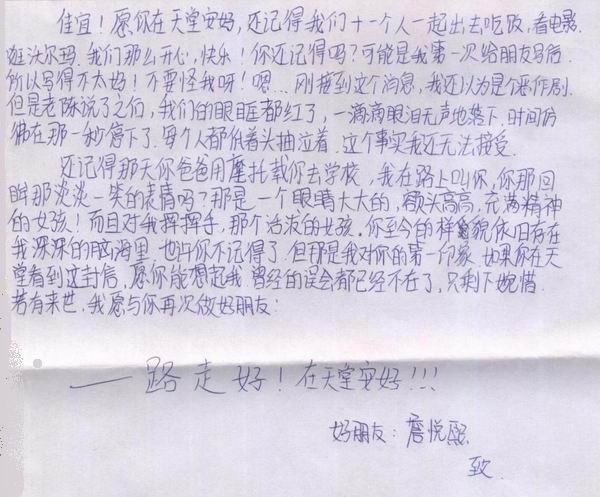 佳宜！愿你在天堂安好，还记得我们十一个人一起出去吃饭，看电影.
逛沃尔玛.我们那么开心，快乐！你还记得吗？可能是我第一次给朋友写信.
所以写得不太好！不要怪我呀！嗯…刚接到这个消息，我还以为是个恶作剧.
但是老陈说了之后，我们的眼眶都红了，一滴滴眼泪无声地落下.时间仿
佛在那一秒停下了.每个人都低着头抽泣着.这个事实我还无法接受.
还记得那天你爸爸用摩托载你去学校，我在路上叫你，你那回
眸那淡淡一笑的表情吗？那是一个眼睛大大的，额头高高，充满精神
的女孩！而且对我挥挥手，那个活泼的女孩.你至今的样貌依旧存在
我深深的脑海里.也许你不记得了.但那是我对你的第一印象.如果你在天
堂看到这封信，愿你能想起我.曾经的误会都已经不在了，只剩下惋惜.
若有来世.我愿与你再次做好朋友：
——路走好！在天堂安好！！！
好朋友：詹悦熙
致.